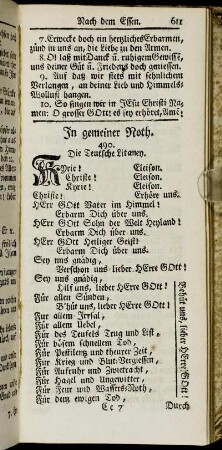 Nach dem Essen. 611
7. Erwecke doch ein hertzliches Erbarmen,
zünd in uns an, die Liebe zu den Armen.
8. Ol laß mit Danck u. ruhigem Gewisse,
uns deiner Güt u. Friedens doch geniessen.
9. Auf daß wir stets mit sehnlichem
Verlangen, an deiner Lieb und Himmels-
Wollust hangen.
10. So singen wir in JEsu Christi Na-
men: O grosser GOtt! es sey erhöret, Amē!
In gemeiner Noth.
490.
Die Teutsche Litaney.
Kyrie! Eleison.
Christe! Eleison.
Kyrie! Eleison.
Christe! Erhöre uns.
HErr GOtt Vater im Himmel!
Erbarm Dich über uns.
HErr GOtt Sohn der Welt Heyland!
Erbarm Dich über uns.
HErr GOtt Heiliger Geist!
Erbarm Dich über uns.
Sey uns gnädig,
Verschon uns lieber HErre GOtt!
Sey uns gnädig,
Hilf uns, lieber HErre GOtt!
Für allen Sünden,
B'hüt uns, lieber HErre GOtt!
Für allem Irrsal,
Für allem Uebel,
Für des Teufels Trug und List,
Für bösem schnellem Tod,
Für Pestilentz und theurer Zeit,
Für Krieg und Blut-Vergiessen,
Für Aufruhr und Zwietracht,
Für Hagel und Ungewitter,
Für Feur und Wassers-Noth,
Für dem ewigen Tod,
Behüt uns, lieber HErre GOtt!
Cc 7 Durch